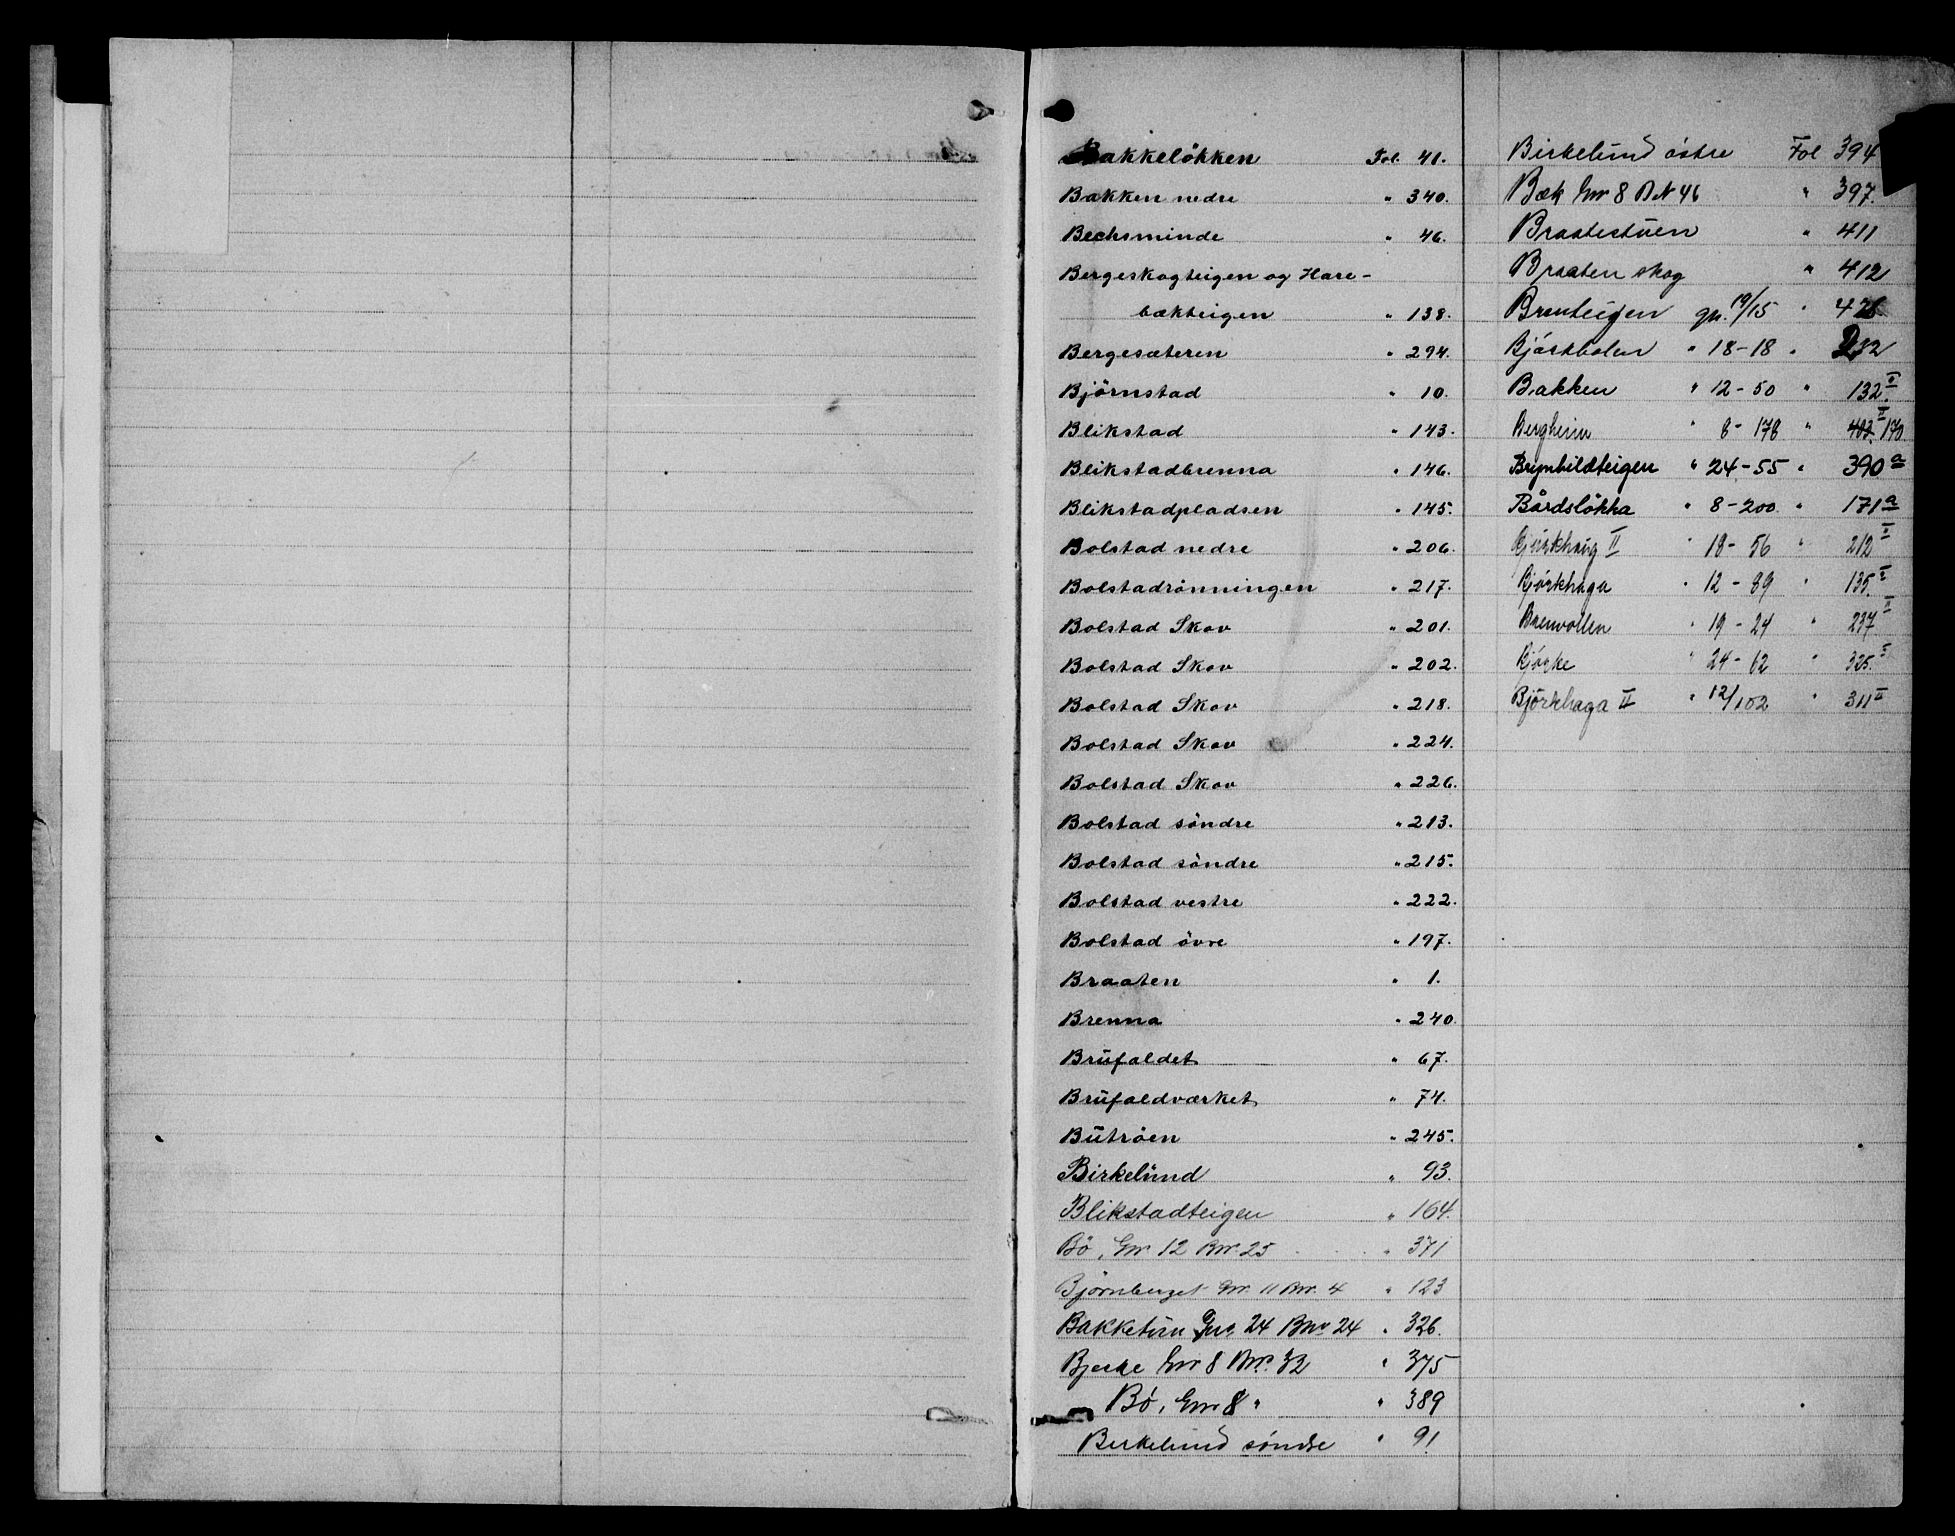 Bakkelökken Fol. 41.
Bakken nedre " 340.
Bechsminde " 46.
Bergeskogteigen og Hare-
bækteigen " 138.
Bergesæteren " 294.
Björnstad " 10.
Blikstad " 143.
Blikstadbrenna " 146.
Blikstadpladsen " 145.
Bolstad nedre " 206.
Bolstadrönningen " 217.
Bolstad Skov " 201.
Bolstad Skov " 202.
Bolstad Skov " 218.
Bolstad Skov " 224.
Bolstad Skov " 226.
Bolstad söndre " 213.
Bolstad söndre " 215.
Bolstad vestre " 222.
Bolstad övre " 197.
Braaten " 1.
Brenna " 240.
Brufaldet " 67.
Brufaldværket " 74.
Butröen " 245.
Birkelund " 93.
Blikstadteigen " 164.
Bö, Gnr 12 Bnr. 25 " 371
Bjørnberget Gnr. 11 Bnr. 4 " 123
Bakketun Gnr. 24 Bnr 24 " 326.
Bjerke Gnr 8 Bnr. 32 " 375
Bö, Gnr 8 " " 389
Birkelund søndre " 91
Birkelund østre Fol 394
Bæk Gnr 8 B N 46 " 397.
Braatestuen " 411
Braaten skog " 412
Brenteigen gn. 19/15 "
Bjørkholen " 18-18 " 232
Bakken " 12-50 " 132 II
Bergheim " 8-178 " 403. II 170
Brynhildteigen " 24-55 " 390 a
Bårdsløkka " 8-200. " 171 a
Bjørkhaug II " 18-56 " 212 II
Bjørkhaga " 12-89 " 135. II
Brenvollen " 19-24 " 237 II
Bjørke " 24-62 " 325. II
Björkhaga II " 12/102 " 311 II